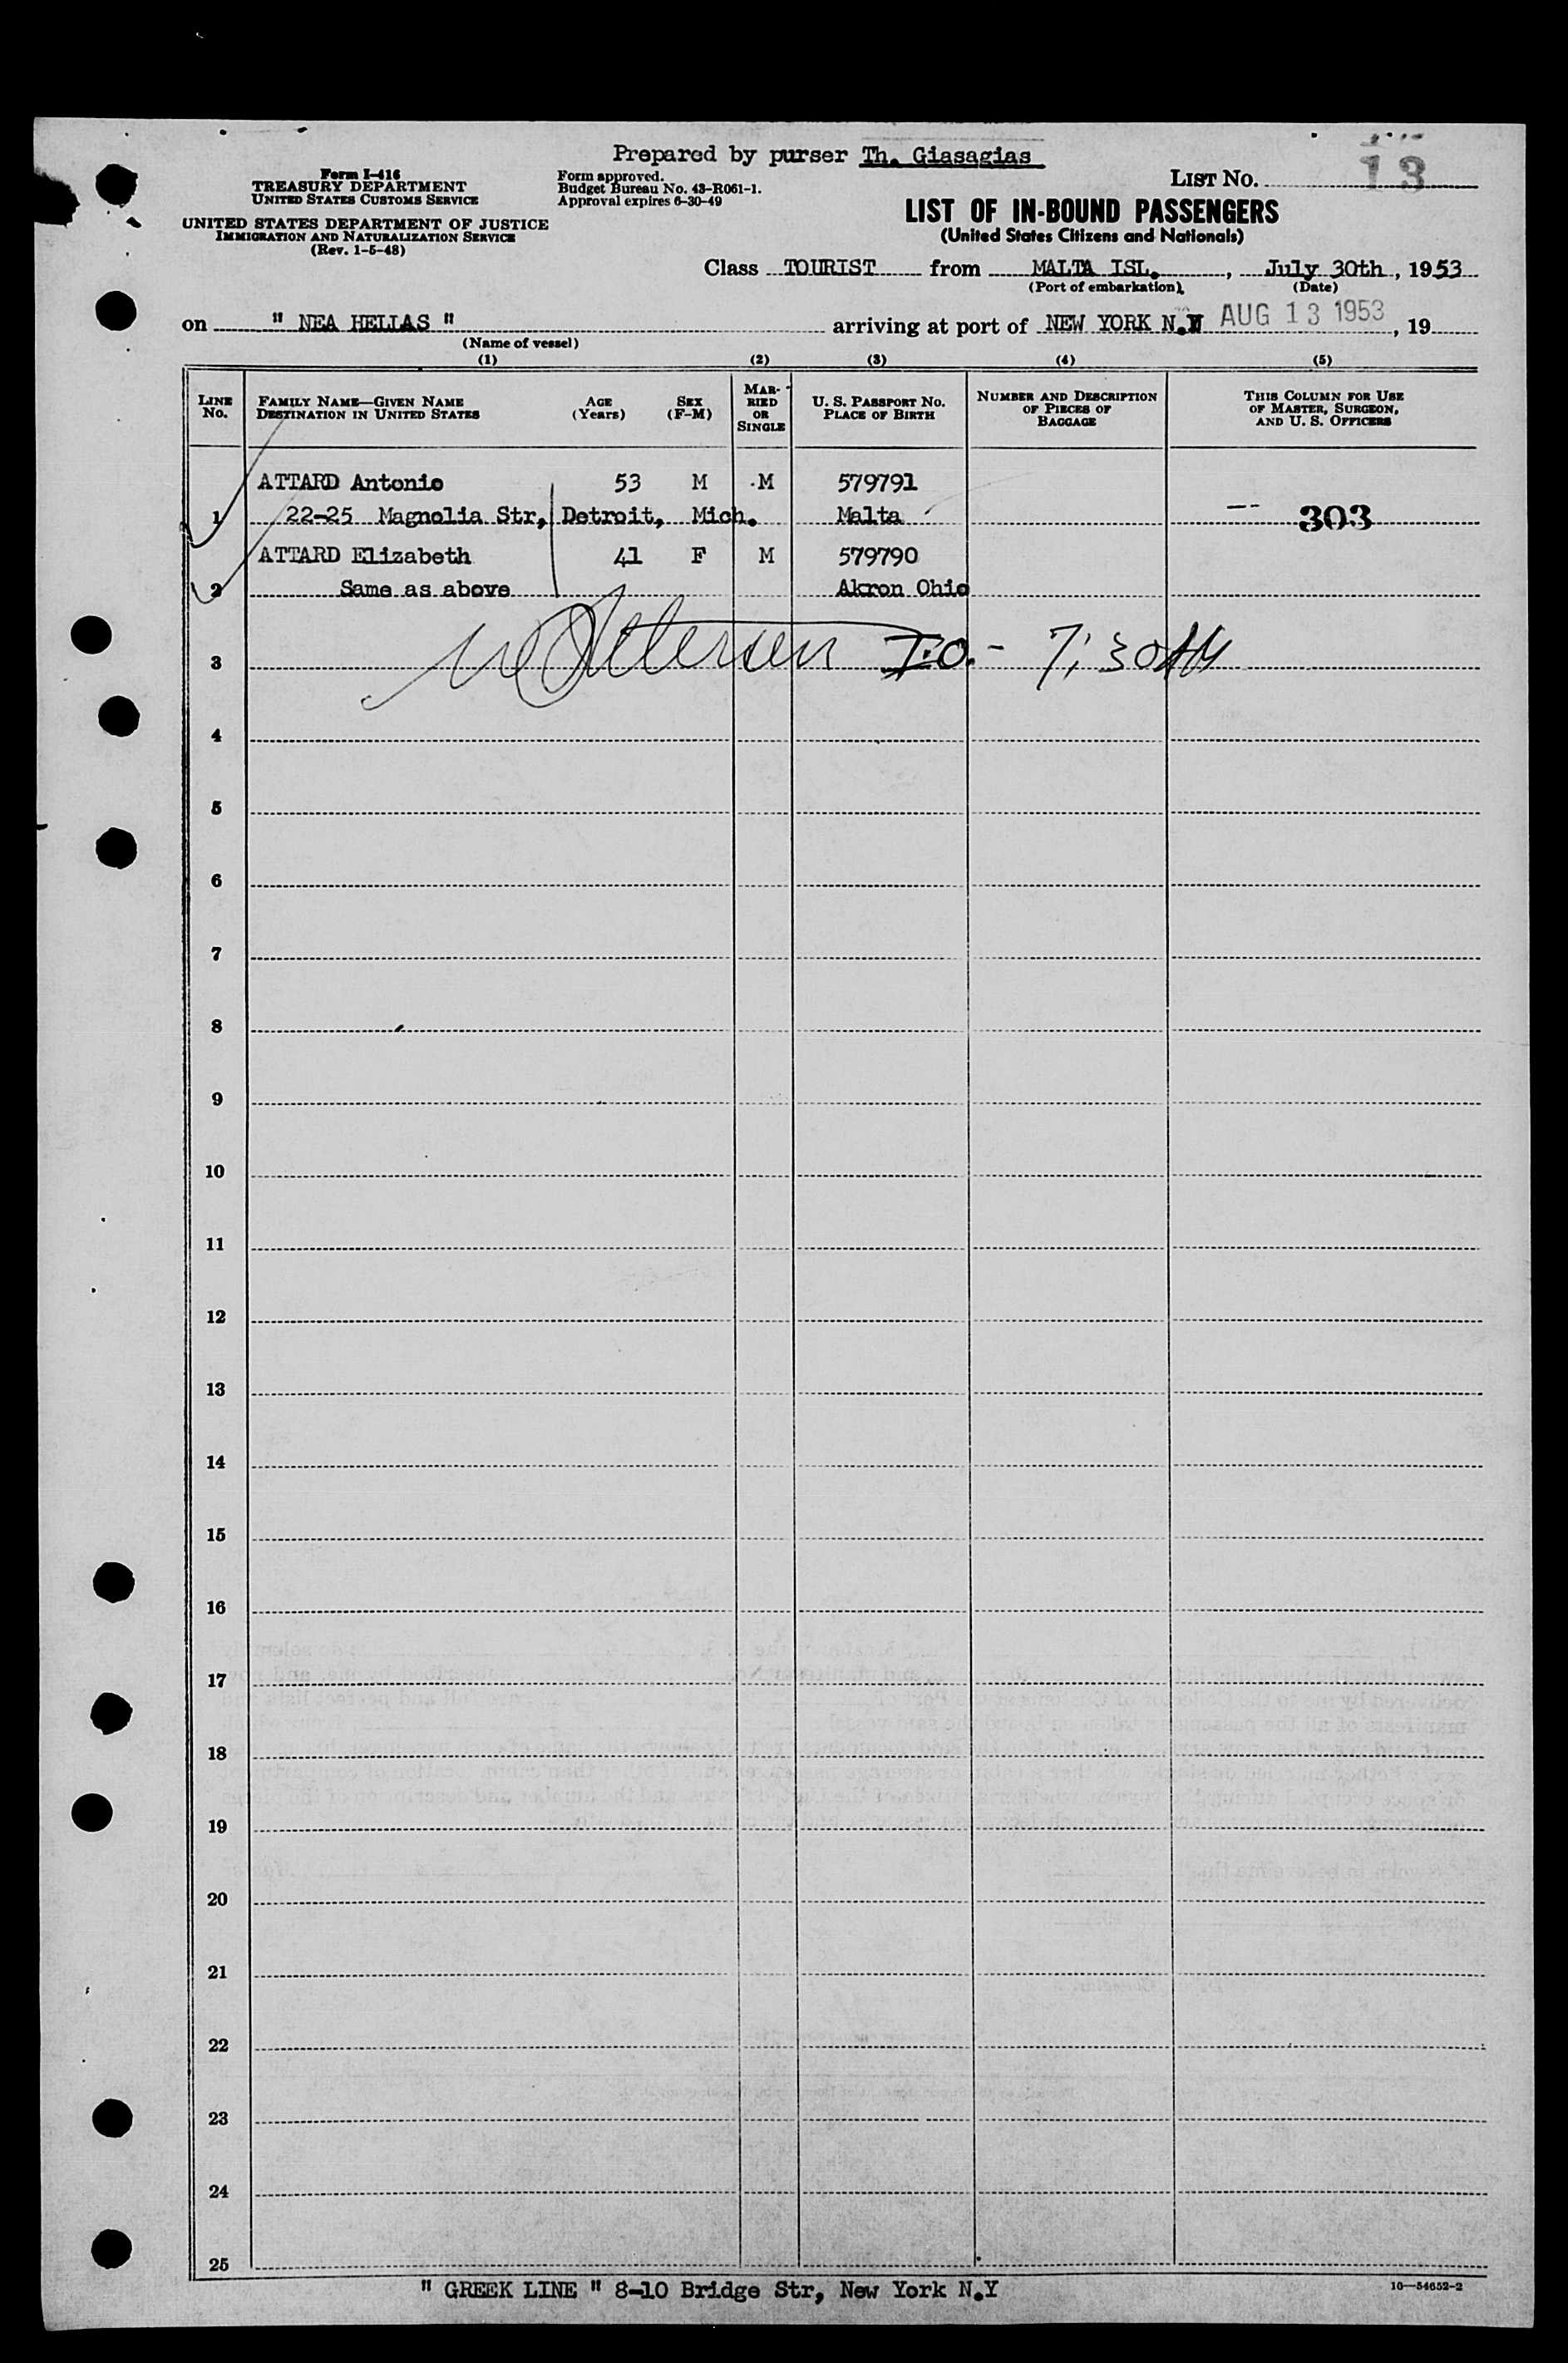 Prepared by purser Th. Giasagias
Form I-416
TREASURY DEPARTMENT
UNITED STATES CUSTOMS SERVICE
UNITED STATES DEPARTMENT OF JUSTICE
IMMIGRATION AND NATURALIZATION SERVICE
(Rev. 1-5-48)
Form approved.
Budget Bureau No. 43-R061-1.
Approval expires 6-30-49
LIST NO. 13
LIST OF IN-BOUND PASSENGERS
(United States Citizens and Nationals)
Class TOURIST from MALTA ISL. , July 30th, 1953
(Port of embarkation) (Date)
on " NEA HELLAS " arriving at port of NEW YORK N.Y AUG 13 1953, 19
(Name of vessel)
(1) (2) (3) (4) (5)
LINE NO.
FAMILY NAME—GIVEN NAME
DESTINATION IN UNITED STATES
AGE
(YEARS)
SEX
(F-M)
MAR-
RIED
OR
SINGLE
U. S. PASSPORT NO.
PLACE OF BIRTH
NUMBER AND DESCRIPTION
OF PIECES OF
BAGGAGE
THIS COLUMN FOR USE
OF MASTER, SURGEON,
AND U. S. OFFICERS
ATTARD Antonio 53 M M 579791
1 22-25 Magnolia Str, Detroit, Mich. Malta 303
ATTARD Elizabeth 41 F M 579790
2 Same as above Akron Ohio
3 I.O. - 7:30 AM
4
5
6
7
8
9
10
11
12
13
14
15
16
17
18
19
20
21
22
23
24
25
" GREEK LINE " 8-10 Bridge Str, New York N.Y
16—54652-2